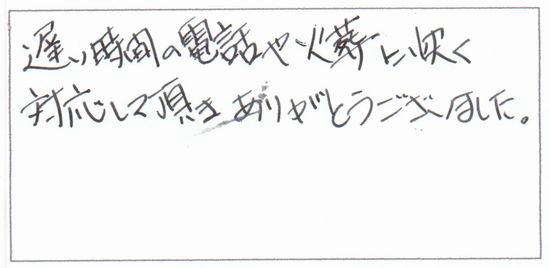 遅い時間の電話や火葬に快く
対応して頂きありがとうございました。